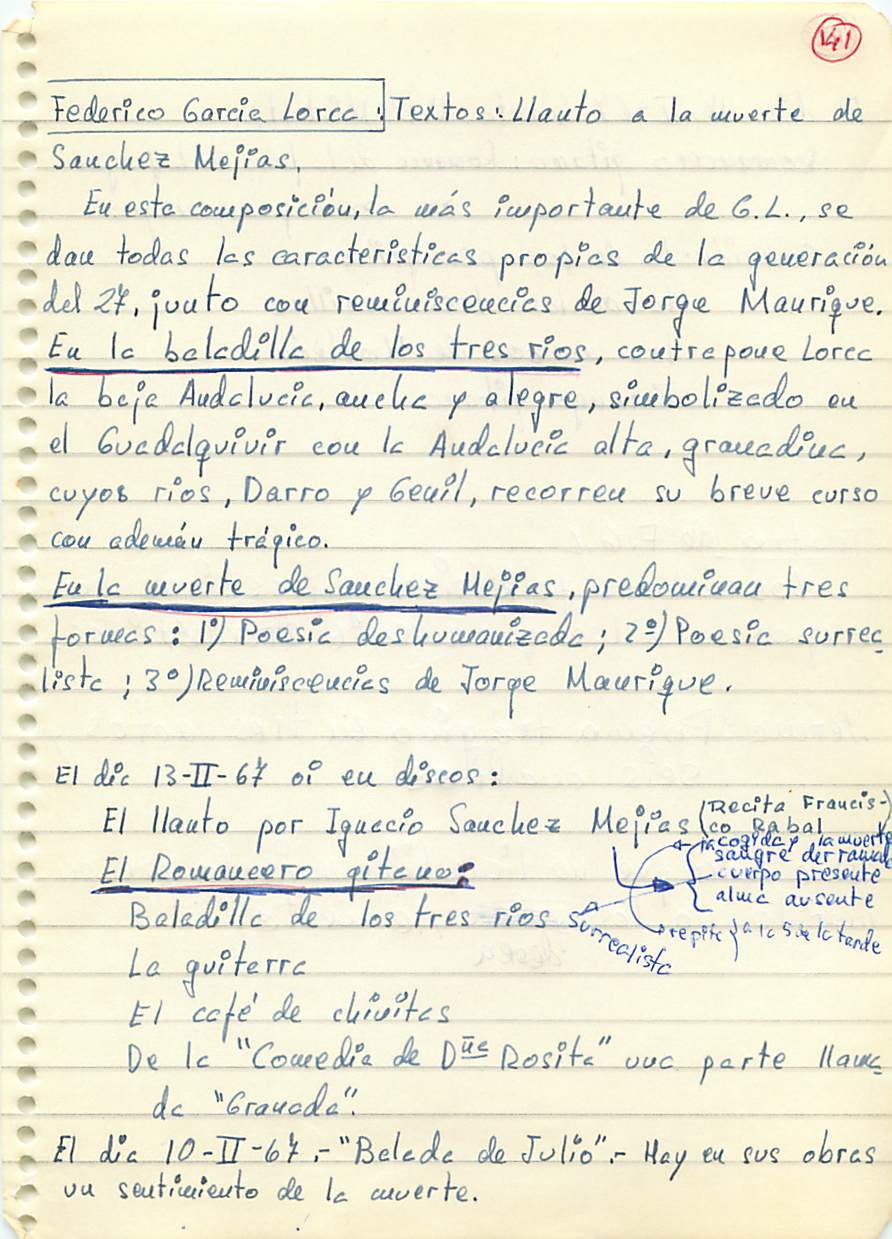 V41
Federico Garcia Lorca : Textos: Llanto a la muerte de
Sanchez Mejías.
En esta composición, la más importante de G.L., se
dan todas las características propias de la generación
del 27, junto con reminiscencias de Jorge Manrique.
En la baladilla de los tres ríos, contrapone Lorca
la baja Andalucía, ancha y alegre, simbolizado en
el Guadalquivir con la Andalucía alta, granadina,
cuyos ríos, Darro y Genil, recorren su breve curso
con ademán trágico.
En la muerte de Sanchez Mejías, predominan tres
formas: 1º) Poesía deshumanizada; 2º) Poesía surrea
lista; 3º) Reminiscencias de Jorge Manrique.
El día 13-II-67 oí en discos:
El llanto por Ignacio Sanchez Mejías (Recita Francis-
co Rabal)
la cogida y la muerte
sangre derramada
cuerpo presente
alma ausente
El Romancero gitano:
Baladilla de los tres ríos
surrealista
repite } a las 5 de la tarde
La guitarra
El café de chinitas
De la "Comedia de Dña Rosita" una parte llama
da "Granada".
El día 10-II-67.- "Balada de Julio".- Hay en sus obras
un sentimiento de la muerte.